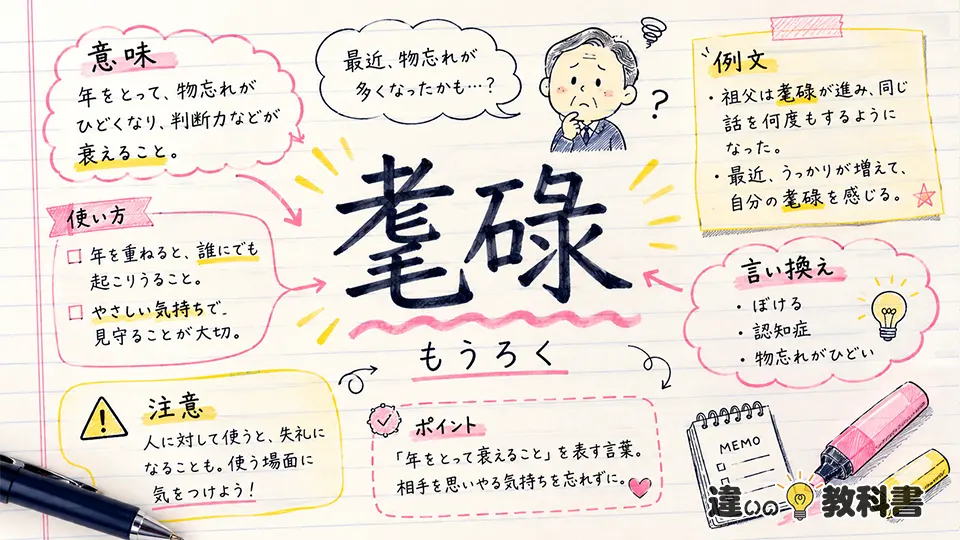 意味
年をとって、物忘れが
ひどくなり、判断力などが
衰えること。
最近、物忘れが
多くなったかも…?
?
例文
・祖父は耄碌が進み、同じ
話を何度もするように
なった。
・最近、うっかりが増えて、
自分の耄碌を感じる。
使い方
□ 年を重ねると、誰にでも
起こりうること。
□ やさしい気持ちで、
見守ることが大切。
耄碌
もうろく
言い換え
・ぼける
・認知症
・物忘れがひどい
注意
人に対して使うと、失礼に
なることも。使う場面に
気をつけよう!
ポイント
「年をとって衰えること」を表す言葉。
相手を思いやる気持ちを忘れずに。
MEMO
違いの教科書